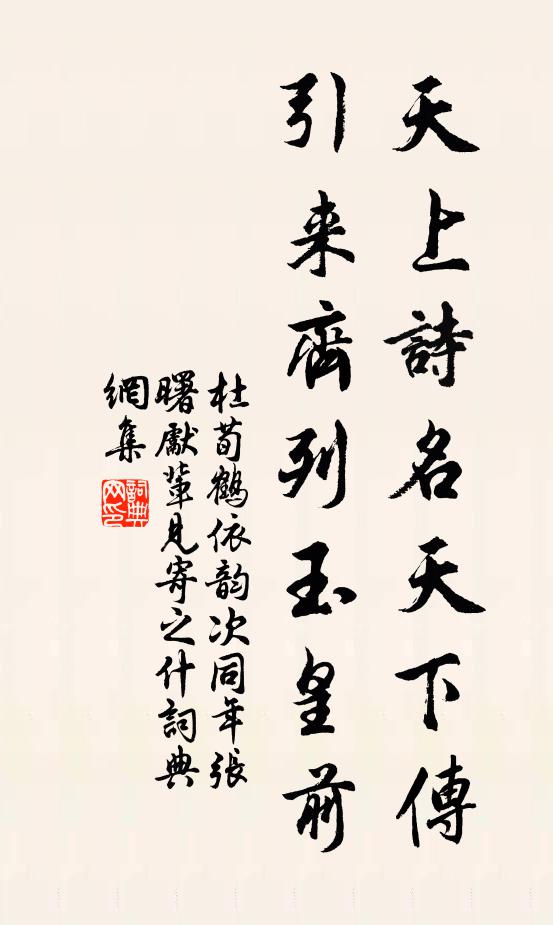 天上詩名天下傳
引来齊列玉皇前
杜荀鶴依韵次同年張
曙獻輩見寄之什詞典
網集
詞典
网印